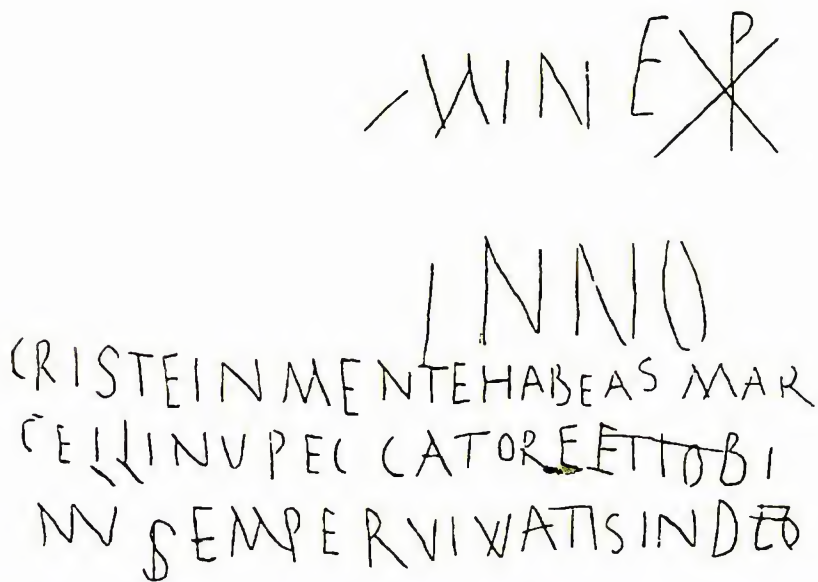 MINE ☧
INNO
CRISTEINMENTEHABEAS MAR
CELLINVPECCATOREETIOBI
NV SEMPERVIVATISINDEO